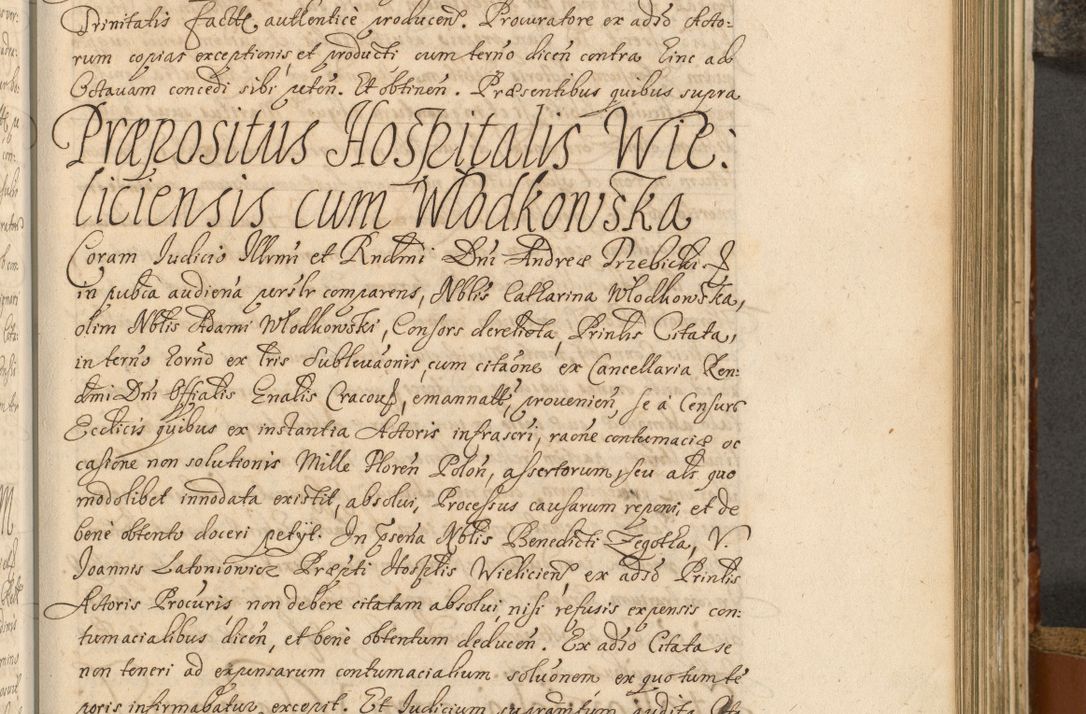 Trinitatis factae, authentice producen. Procuratore ex adso Acto:
rum copias exceptionis, et producti cum terno dicen contra hinc ad
Octavam concedi sibi peten. Et obtinen. Praesentibus quibus supra
Præpositus Hospitalis Wie:
liciensis cum Włodkowska
Coram Iudicio Illrmi et Rndmi Dni Andreæ Trzebicki
in pubca audiena persltr comparens, Nblis Catharina Włodkowska,
olim Nblis Adami Włodkowski, Consors derelicta, Prinlis Citata,
in terno horno ex tris Sublevaonis, cum citaone ex Cancellaria Ren:
dmi Dni Offialis Gnalis Cracoun, emannatt, provenien, se a Censuris
Ecclicis quibus ex instantia Actoris infrascri, raone contumaciæ oc
casione non solutionis Mille Floren Polon, assertorum, seu als quo
modolibet innodata existit, absolui, Processus causarum reponi, et de
bene obtento doceri petijt. In psena Nblis Benedicti Zegotka, V.
Joannis Latoniowicz Præpti Hosplis Wielicien, ex adso Prinlis
Actoris Procuris non debere citatam absolui, nisi refusis expensis con:
tumacialibus dicen, et bene obtentum deducen. Ex adso Citata se
non teneri ad expensarum contumacialium soluonem ex quo tum te
poris infirmabatur excepit. Et Iudicium supramtum audita